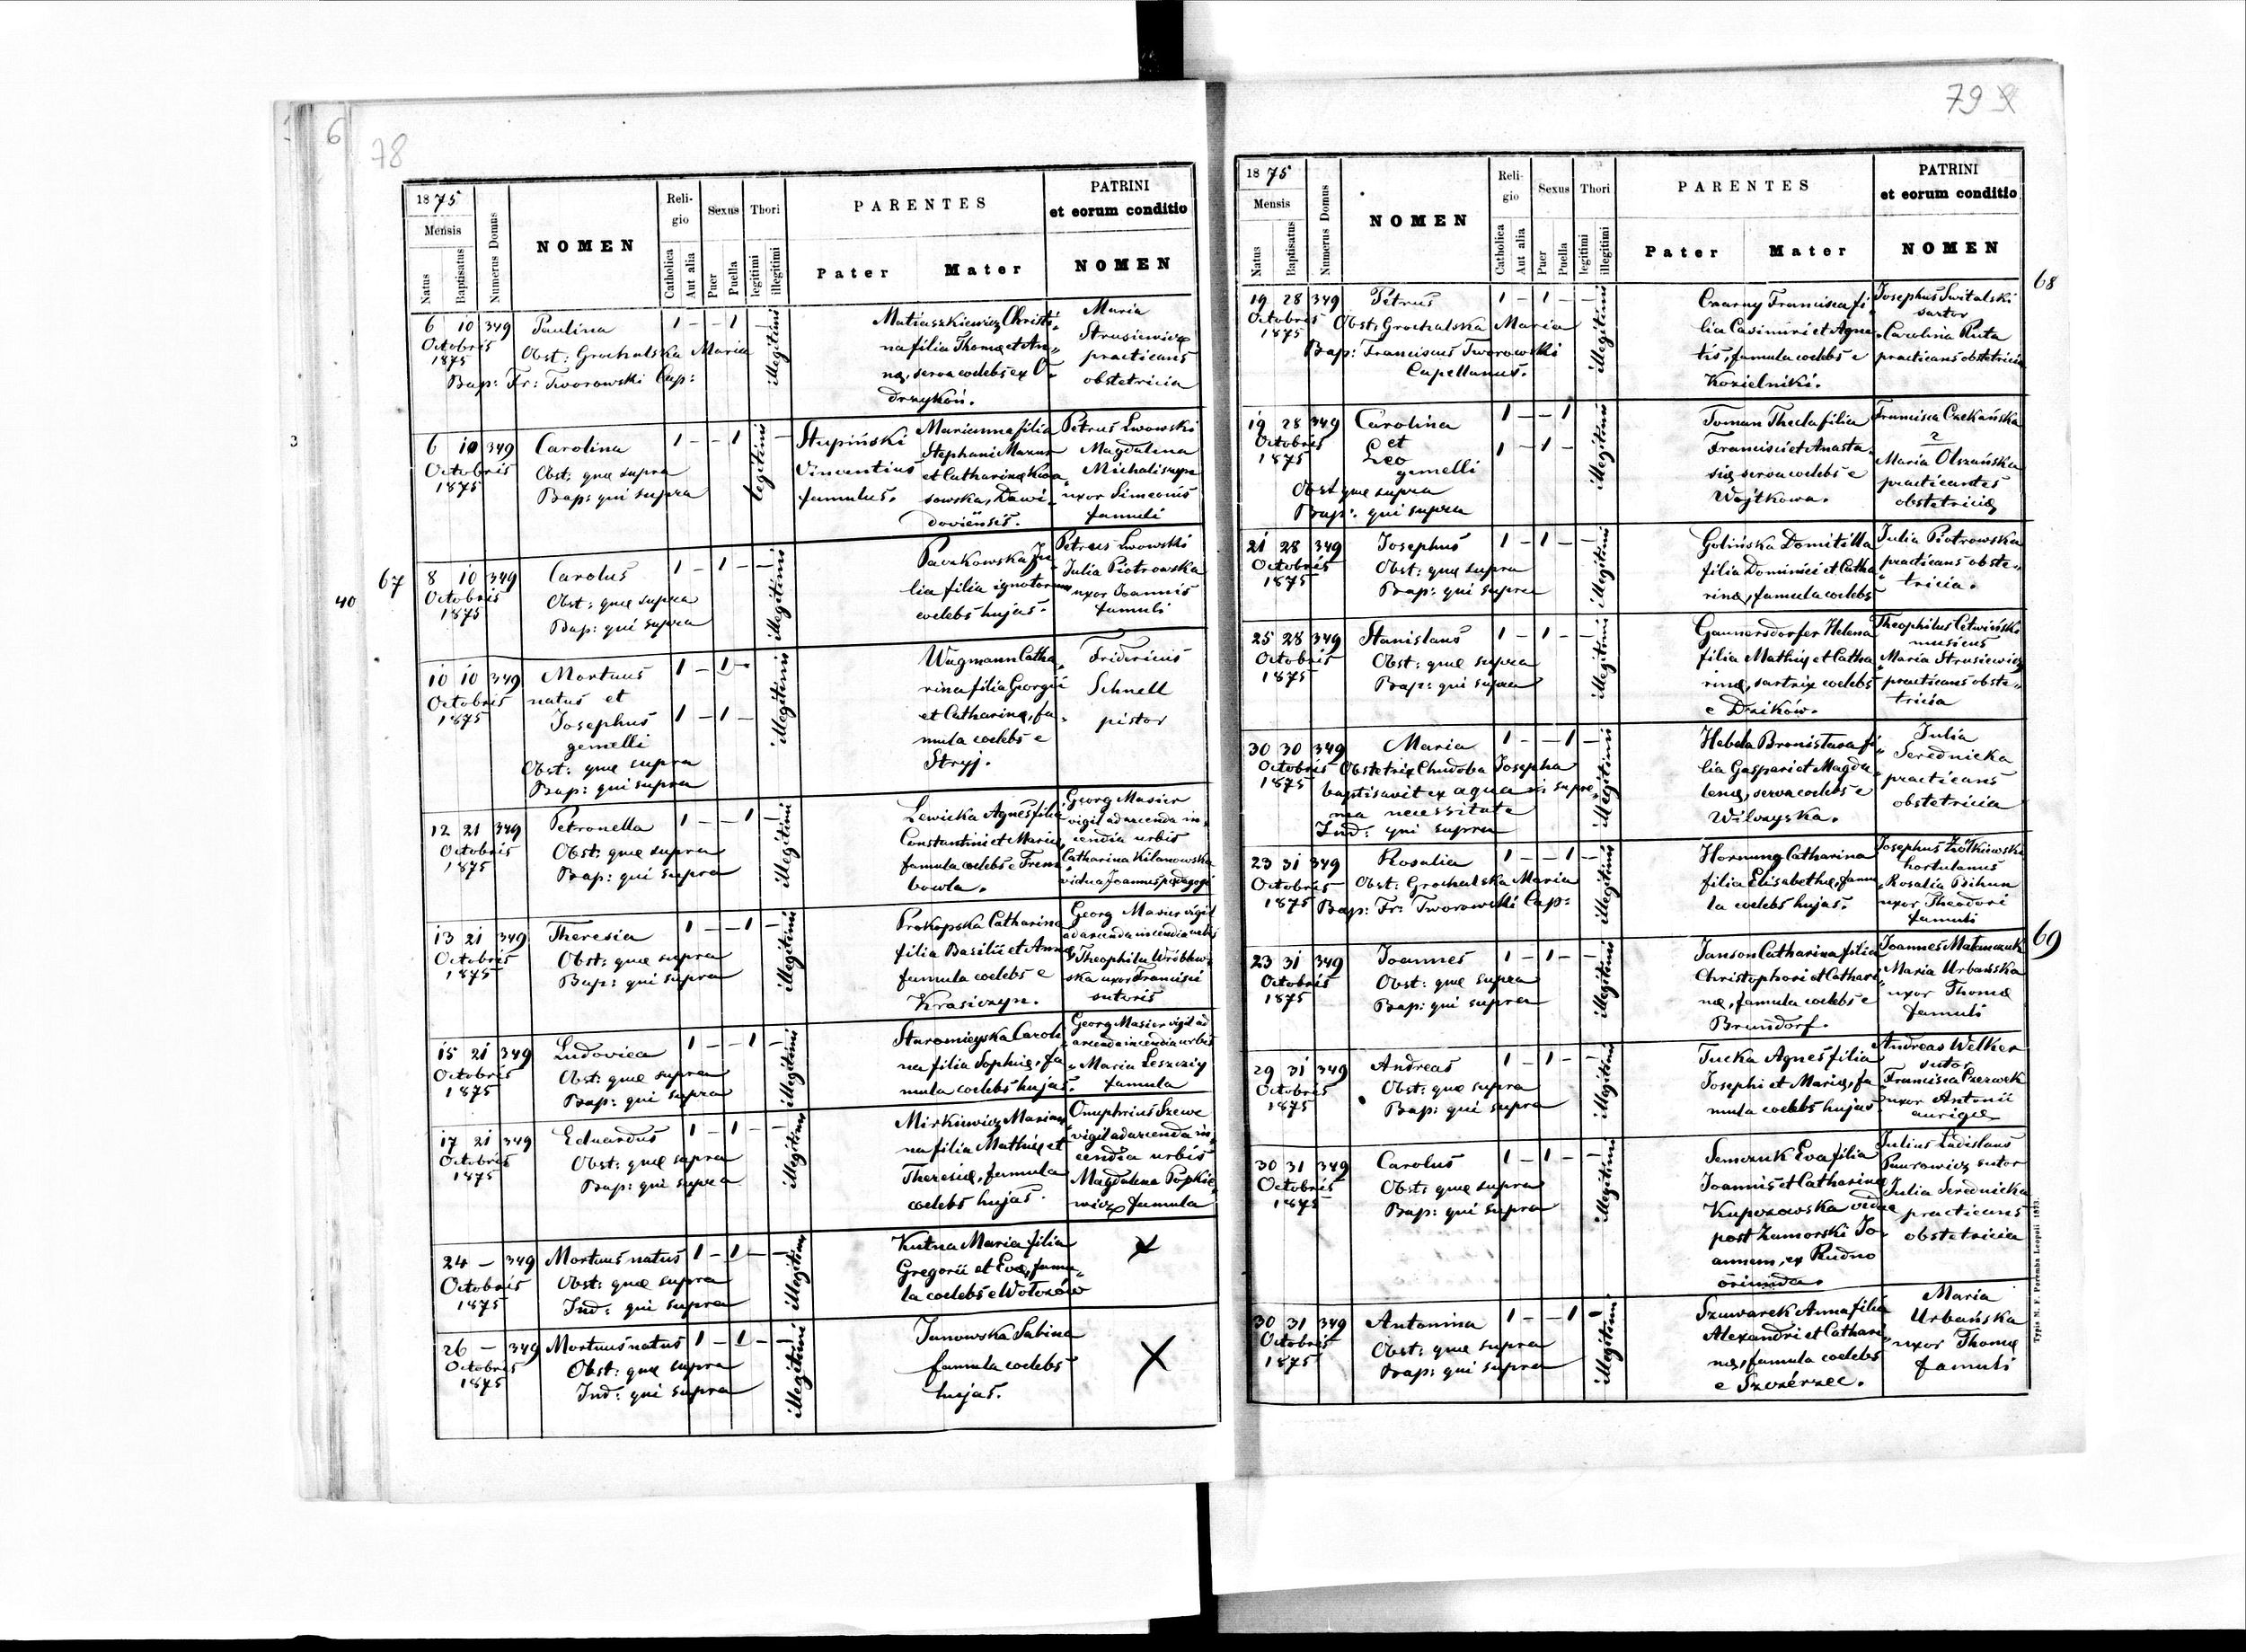 6
78
1875
Mensis
Natus
Baptisatus
Numerus Domus
NOMEN
Religio
Catholica
Aut alia
Sexus
Puer
Puella
Thori
legitimi
illegitimi
PARENTES
Pater
Mater
PATRINI
et eorum conditio
NOMEN
6 10 349 Paulina 1 – – 1 – illegitimi Matiaszkiewicz Christi- Maria
Octobris Obst: Grochalska Maria na filia Thomæ et An- Strusiewicz
1875 næ, serva coelebs ex O- practicans
Bap: Fr: Tworowski Cap: drzykoń. obstetricia
6 10 349 Carolina 1 – – 1 legitimi – Stupiński Marianna filia Petrus Lwowski
Octobris Obst: quæ supra Vincentius Stephani Mazur Magdalena
1875 Bap: qui supra famulus. et Catharinæ Michaliszyn
sowska, Dawi- uxor Simeonis
doviensis. famuli
67
40
3
8 10 349 Carolus 1 – 1 – – illegitimi Paczkowska Ju- Petrus Lwowski
Octobris Obst: quæ supra lia filia ignotorum Julia Piotrowska
1875 Bap: qui supra coelebs hujas. uxor Joannis
famuli
10 10 349 Mortuus 1 – 1 – illegitimi Wagmann Catha- Fridericus
Octobris natus et rina filia Georgii Schnell
1875 Josephus 1 – 1 – et Catharinæ, fa- pistor
gemelli mula coelebs e
Obst: quæ supra Stryj.
Bap: qui supra
12 21 349 Petronella 1 – – 1 – illegitimi Lewicka Agnes filia Georg Masier
Octobris Obst: quæ supra Constantini et Mariæ, vigil ad arcenda in-
1875 Bap: qui supra famula coelebs e Trem- cendia urbis
bowla. Catharina Kilanowska
vidua Joannis pædagogi
13 21 349 Theresia 1 – – 1 – illegitimi Prokopska Catharina Georg Masier vigil
Octobris Obst: quæ supra filia Basilii et Annæ ad arcenda incendia urbis
1875 Bap: qui supra famula coelebs e Theophila Wróblew-
Krasiczyn. ska uxor Francisci
sutoris
15 21 349 Ludovica 1 – – 1 – illegitimi Staromieyska Caroli- Georg Masier vigil ad
Octobris Obst: quæ supra na filia Sophiæ, fa- arcenda incendia urbis
1875 Bap: qui supra mula coelebs hujas. Maria Leszczig
famula
17 21 349 Eduardus 1 – 1 – – illegitimi Mirkiewicz Marian- Onuphrius Szewc
Octobris Obst: quæ supra na filia Mathiæ et vigil ad arcenda in-
1875 Bap: qui supra Theresiæ, famula cendia urbis
coelebs hujas. Magdalena Popkie-
wicz famula
24 – 349 Mortuus natus 1 – 1 – – illegitimi Kutna Maria filia X
Octobris Obst: quæ supra Gregorii et Evæ, famu-
1875 Ind: qui supra la coelebs e Wołoszów
26 – 349 Mortuus natus 1 – 1 – – illegitimi Janowska Sabina X
Octobris Obst: quæ supra famula coelebs
1875 Ind: qui supra hujas.
79
1875
Mensis
Natus
Baptisatus
Numerus Domus
NOMEN
Religio
Catholica
Aut alia
Sexus
Puer
Puella
Thori
legitimi
illegitimi
PARENTES
Pater
Mater
PATRINI
et eorum conditio
NOMEN
68
19 28 349 Petrus 1 – 1 – – illegitimi Czarny Francisca fi- Josephus Switalski
Octobris Obst: Grochalska Maria lia Casimiri et Agne- sartor
1875 Bap: Franciscus Tworowski tis, famula coelebs e Carolina Ruta
Capellanus. Kozielniki. practicans obstetricia
19 28 349 Carolina 1 – – 1 illegitimi Toman Thecla filia Francisca Czekańska
Octobris et Francisci et Anasta- 2
1875 Leo 1 – 1 – siæ serva coelebs e Maria Olszańska
gemelli Wojtkowa. practicantes
Obst quæ supra obstetriciæ
Bap: qui supra
21 28 349 Josephus 1 – 1 – – illegitimi Golińska Domitilla Julia Piotrowska
Octobris Obst: quæ supra filia Dominici et Catha- practicans obste-
1875 Bap: qui supra rinæ, famula coelebs tricia.
25 28 349 Stanislaus 1 – 1 – – illegitimi Gaunersdorfer Helena Theophilus Cetwiński
Octobris Obst: quæ supra filia Mathiæ et Catha- musicus
1875 Bap: qui supra rinæ, sartrix coelebs Maria Strusiewicz
e Dzików. practicans obste-
tricia
30 30 349 Maria 1 – – 1 – illegitimi Hebda Bronislava fi- Julia
Octobris Obstetrix Chudoba Josepha lia Gaspari et Magda- Serednicka
1875 baptisavit ex aqua in supre- lenæ, serva coelebs e practicans
ma necessitate Wilczyska. obstetricia
Ind: qui supra
23 31 349 Rosalia 1 – – 1 – illegitimi Hornung Catharina Josephus Żółkiewski
Octobris Obst: Grochalska Maria filia Elisabethæ, famu- hortulanus
1875 Bap: Fr: Tworowski Cap: la coelebs hujas. Rosalia Bihun
uxor Theodori
famuli
69
23 31 349 Joannes 1 – 1 – – illegitimi Janson Catharina filia Joannes Matanczuk
Octobris Obst: quæ supra Christophori et Cathari- Maria Urbańska
1875 Bap: qui supra næ, famula coelebs e uxor Thomæ
Brundorf. famuli
29 31 349 Andreas 1 – 1 – – illegitimi Tucka Agnes filia Andreas Welker
Octobris Obst: quæ supra Josephi et Mariæ, fa- sutor
1875 Bap: qui supra mula coelebs hujas Francisca Czerwek
uxor Antonii
aurigæ
30 31 349 Carolus 1 – 1 – – illegitimi Semczuk Eva filia Julius Ladislaus
Octobris Obst: quæ supra Joannis et Catharinæ sutor
1875 Bap: qui supra vidua Julia Serednicka
post Zamorski Jo- practicans
annem, ex Rudno obstetricia
oriunda.
30 31 349 Antonina 1 – – 1 – illegitimi Szuwarek Anna filia Maria
Octobris Obst: quæ supra Alexandri et Cathari- Urbańska
1875 Bap: qui supra næ, famula coelebs uxor Thomæ
e Szczérzec. famuli
Typis N. F. Poremba Leopoli 1873.